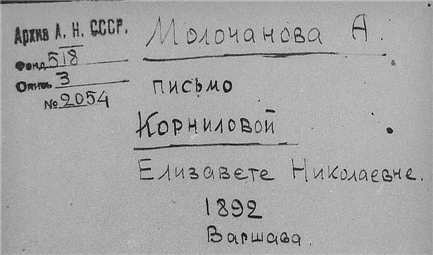 Архив А. Н. СССР.
Фонд 518
Опись 3
№ 2054
Молочанова А.
письмо
Корниловой
Елизавете Николаевне.
1892
Варшава.